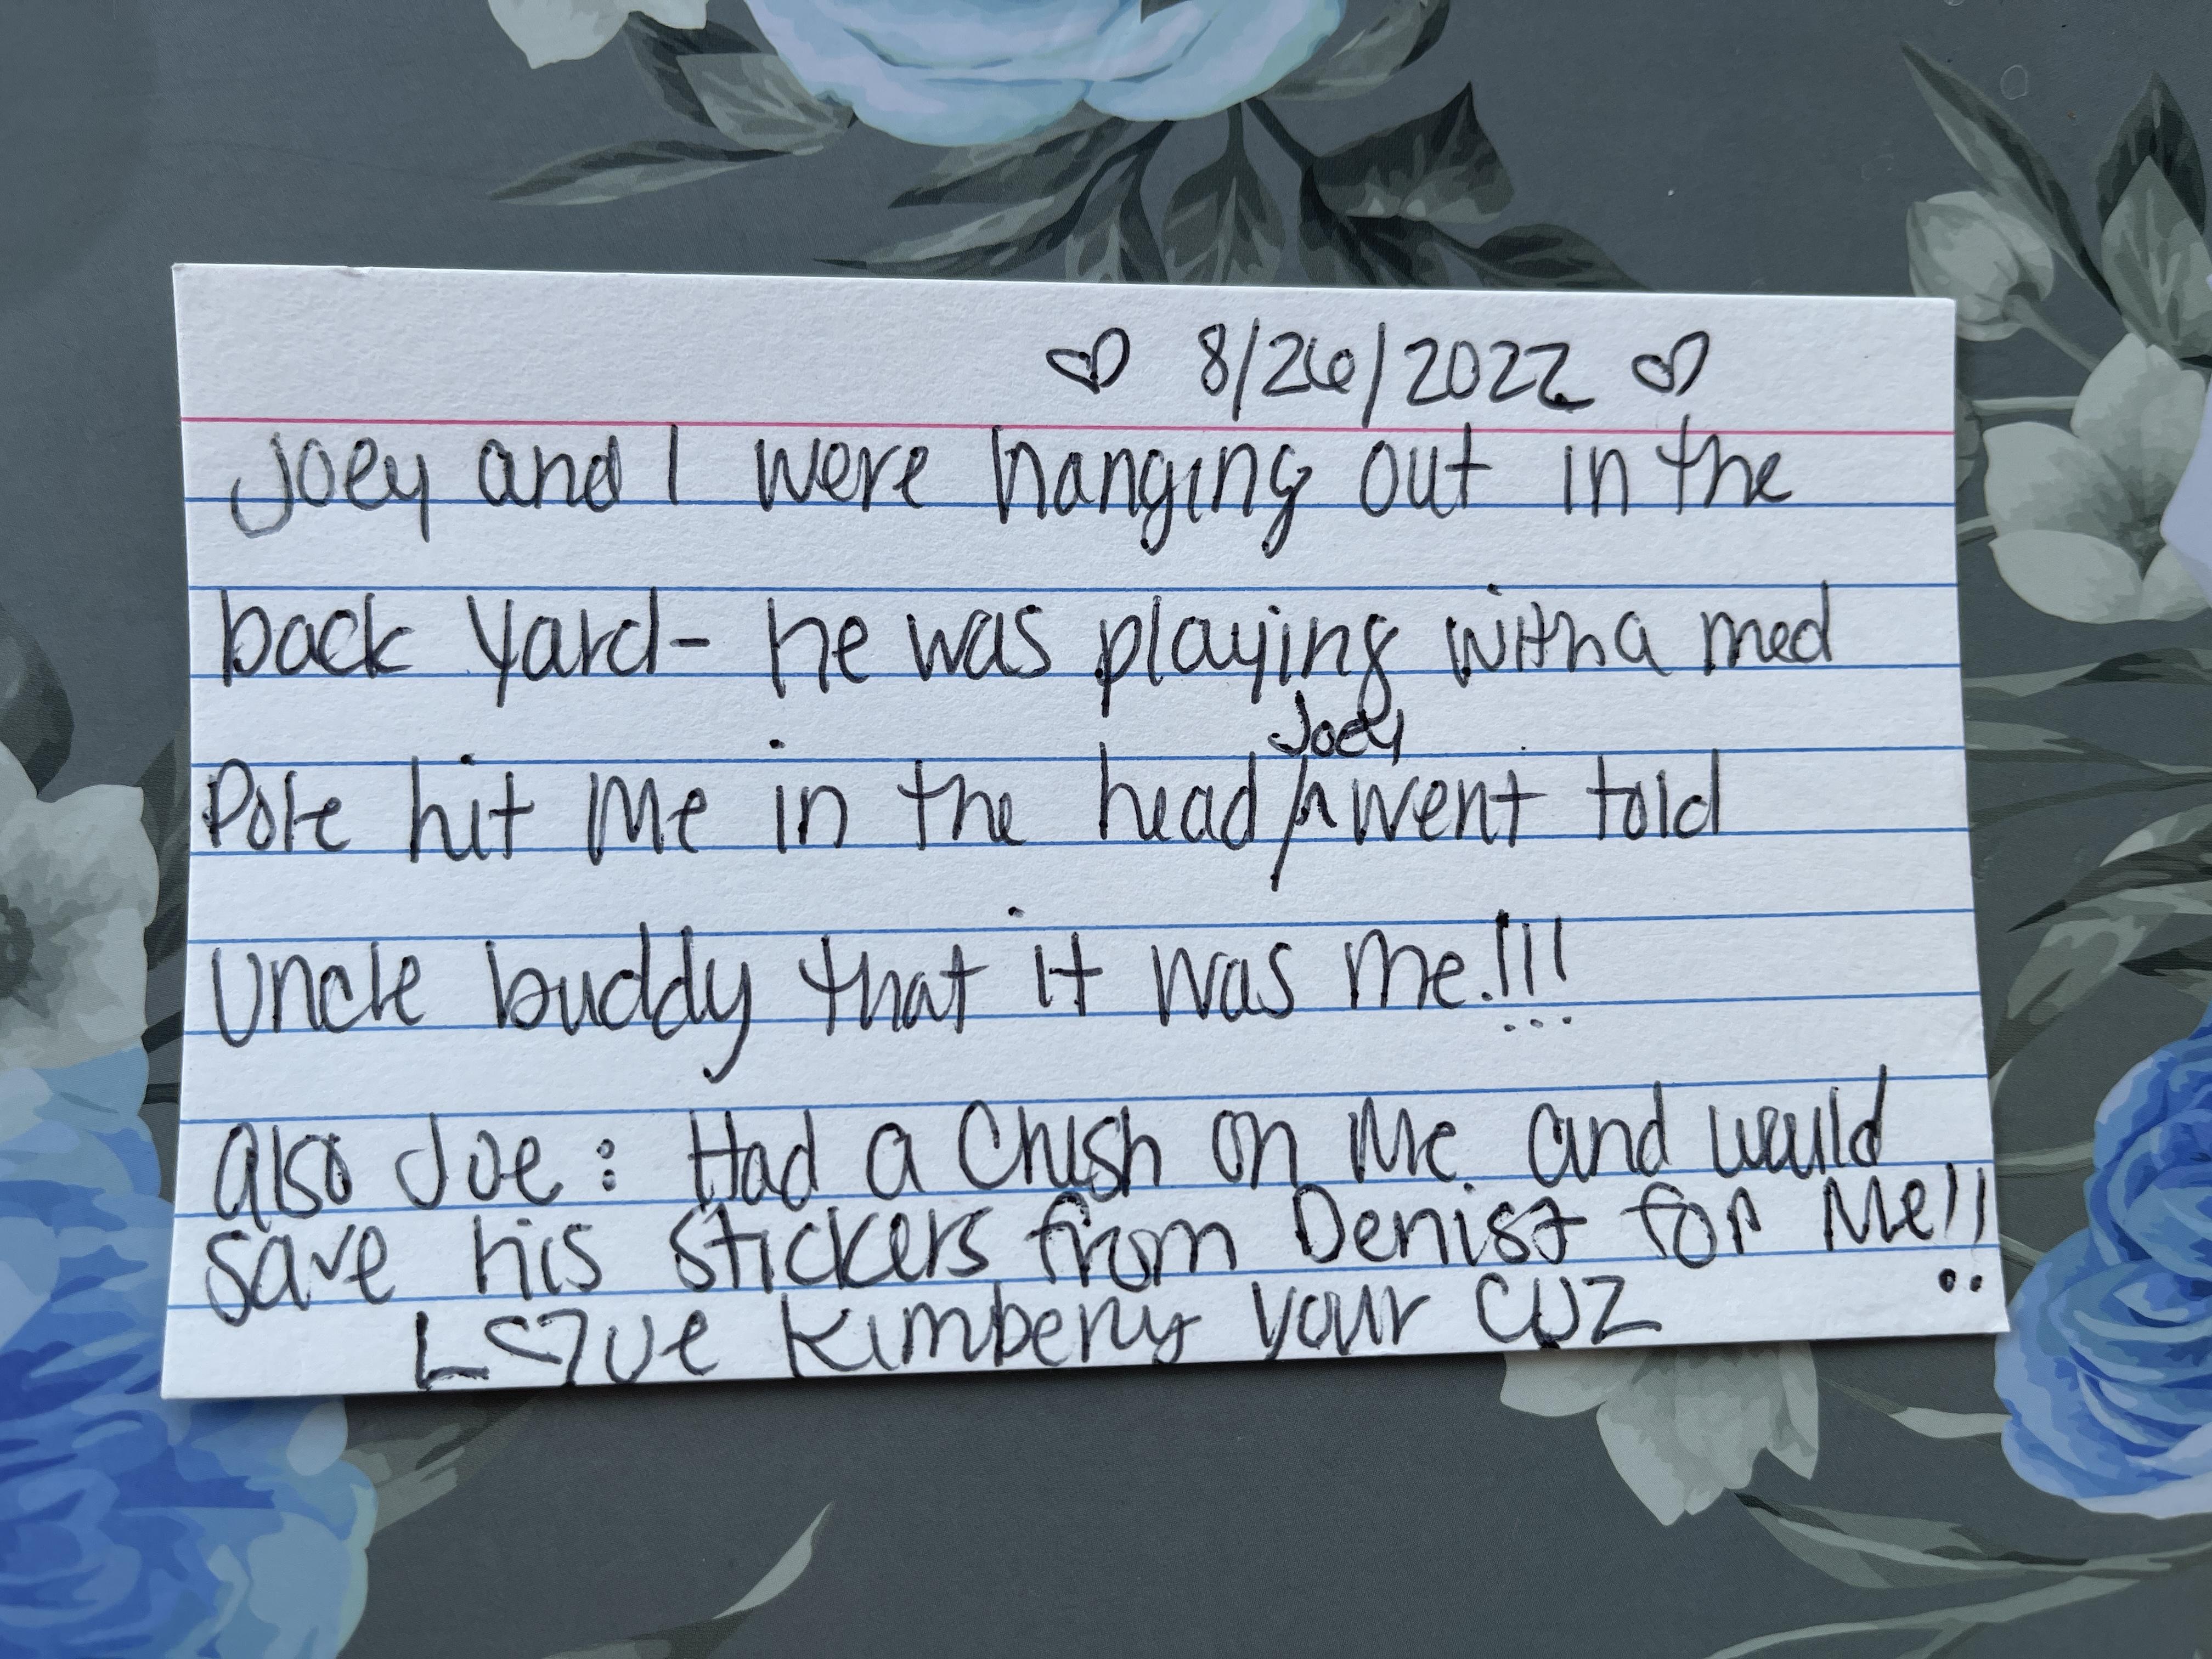 ♡ 8/26/2022 ♡
Joey and I were hanging out in the
back yard- he was playing with a med
Pole hit me in the head / ^ Joey went told
Uncle buddy that it was me!!!
also Joe: Had a Chush on Me and would
save his stickers from Denist for Me!!
L♡ve Kimberly your CUZ